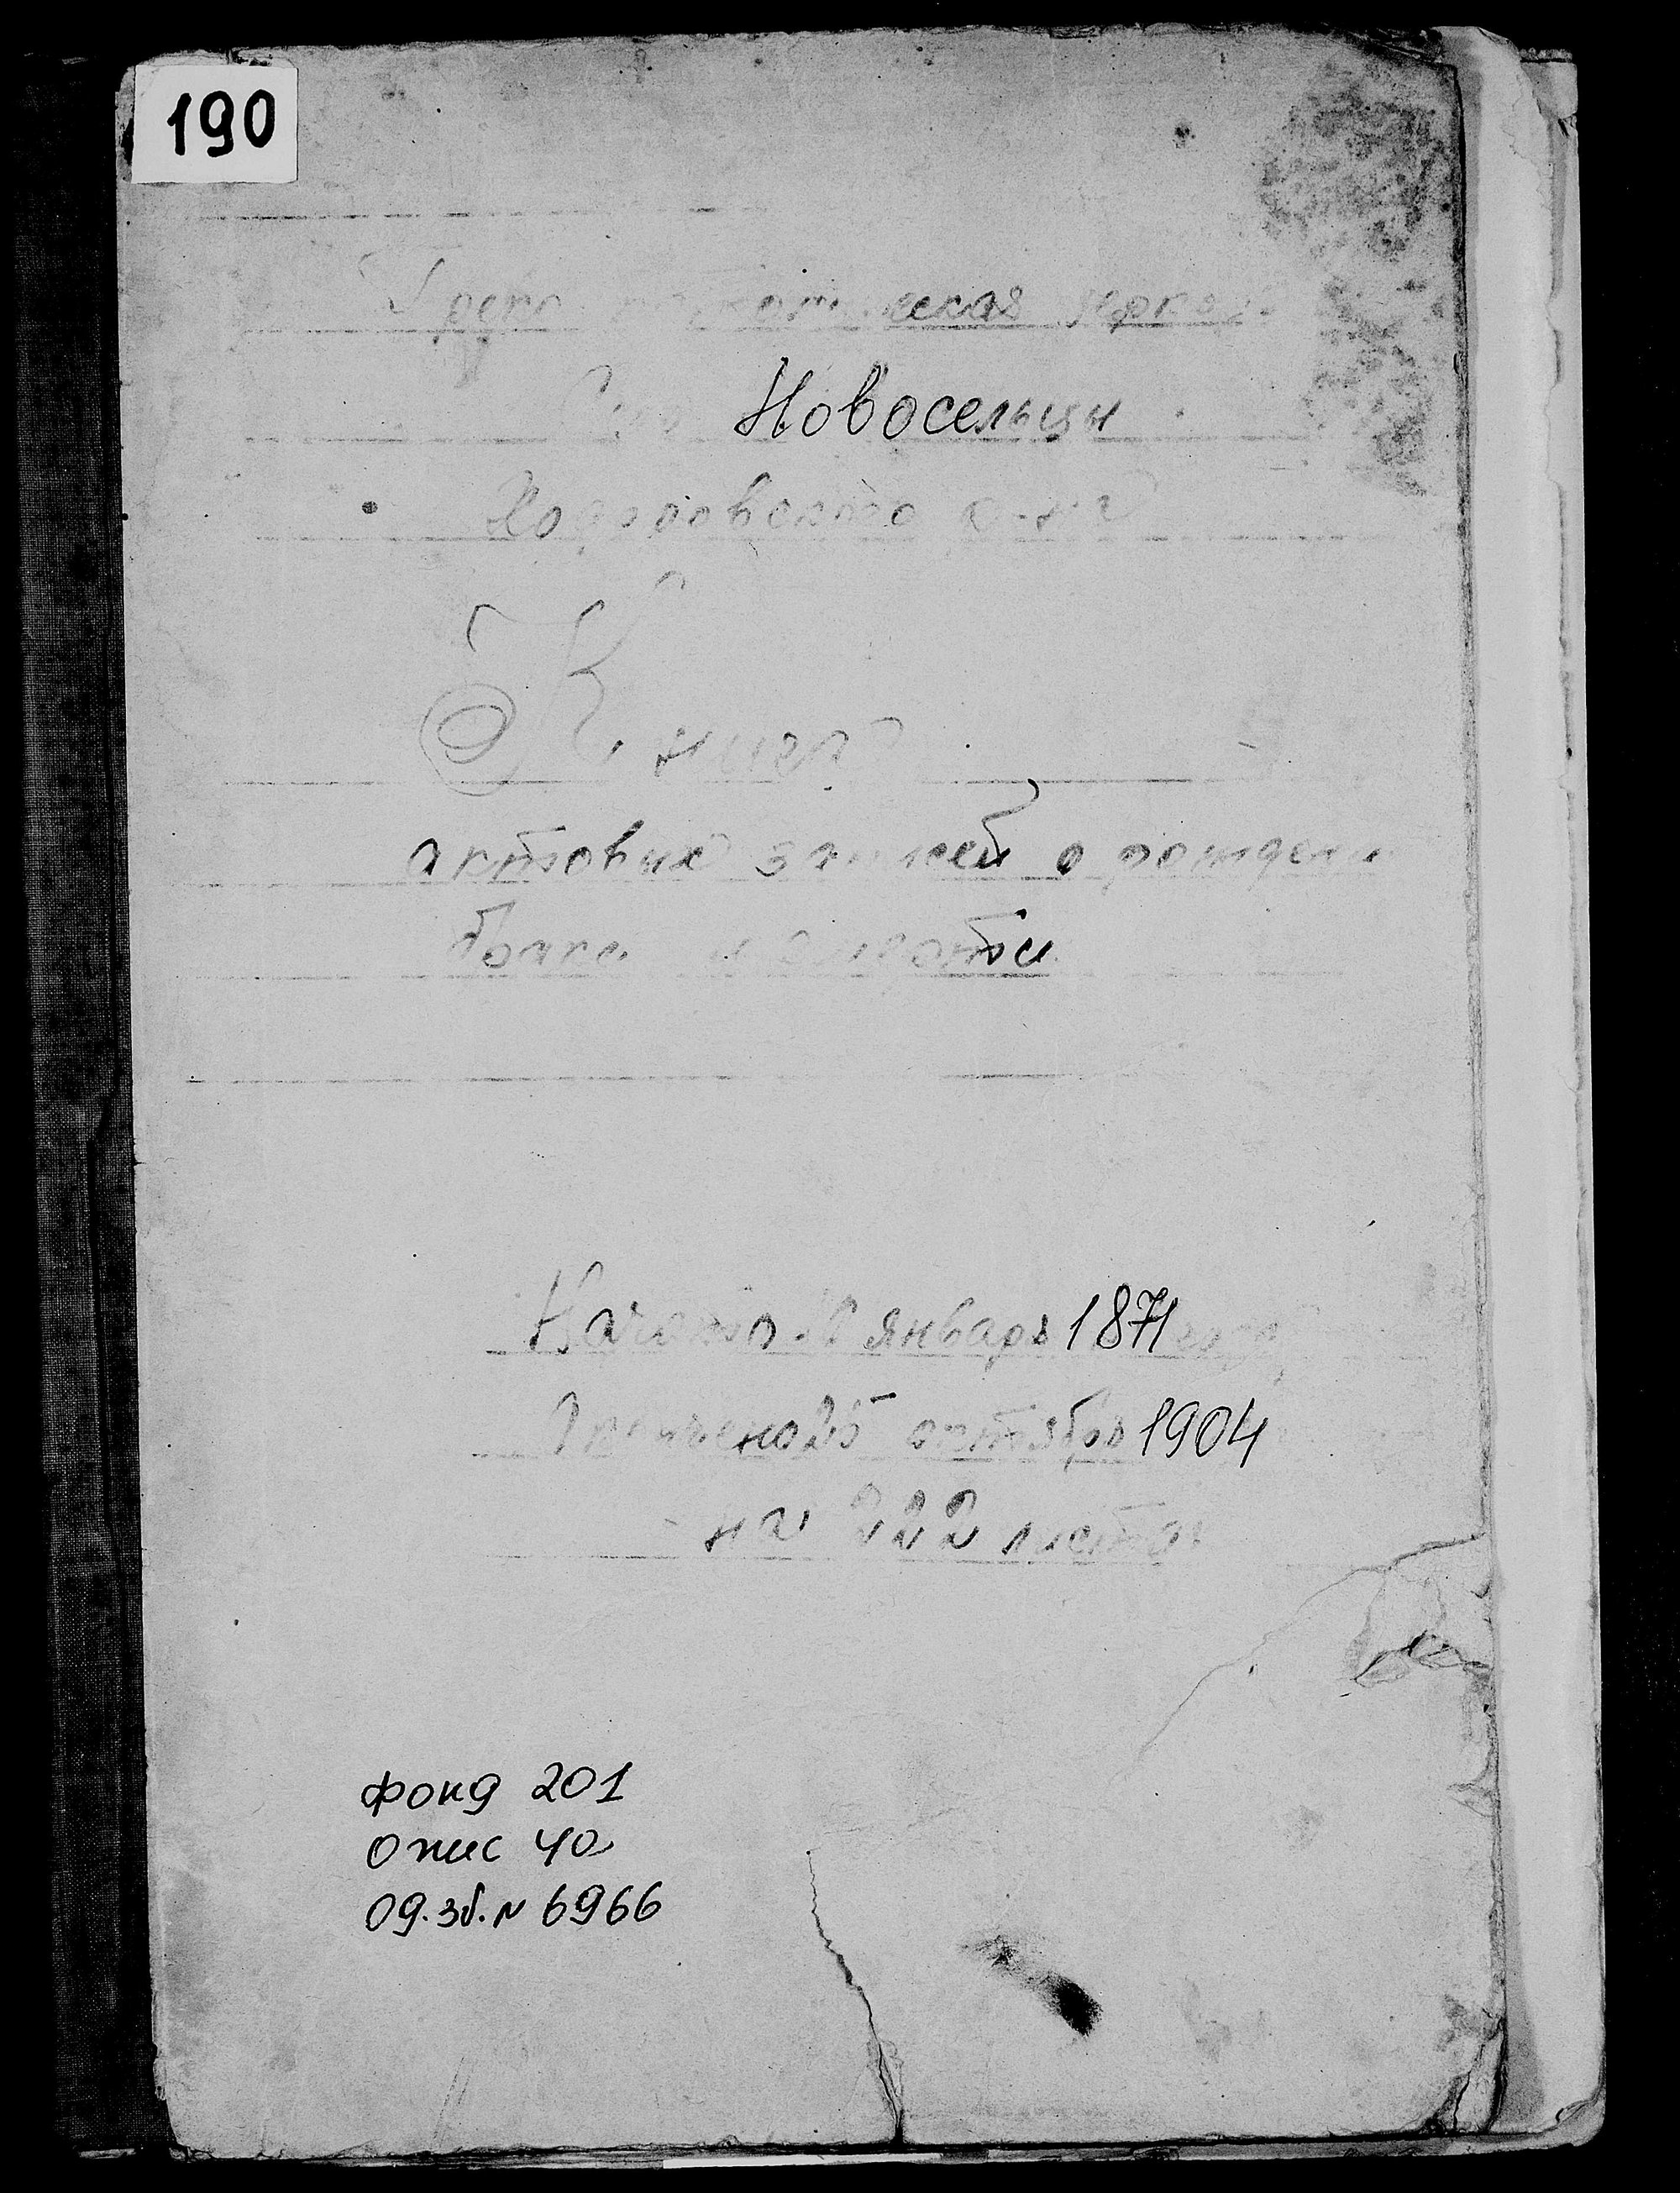 190
Греко католическая церковь
Село Новосельцы
Ходоровского р-на
Книга
актовых записей о рождении
браке и смерти
Начато января 1871
Окончено 25 октября 1904
на 222 листах
Фонд 201
Опис 4а
од. зб. N 6966